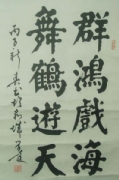 群鴻戲海
舞鶴遊天
丙子秋